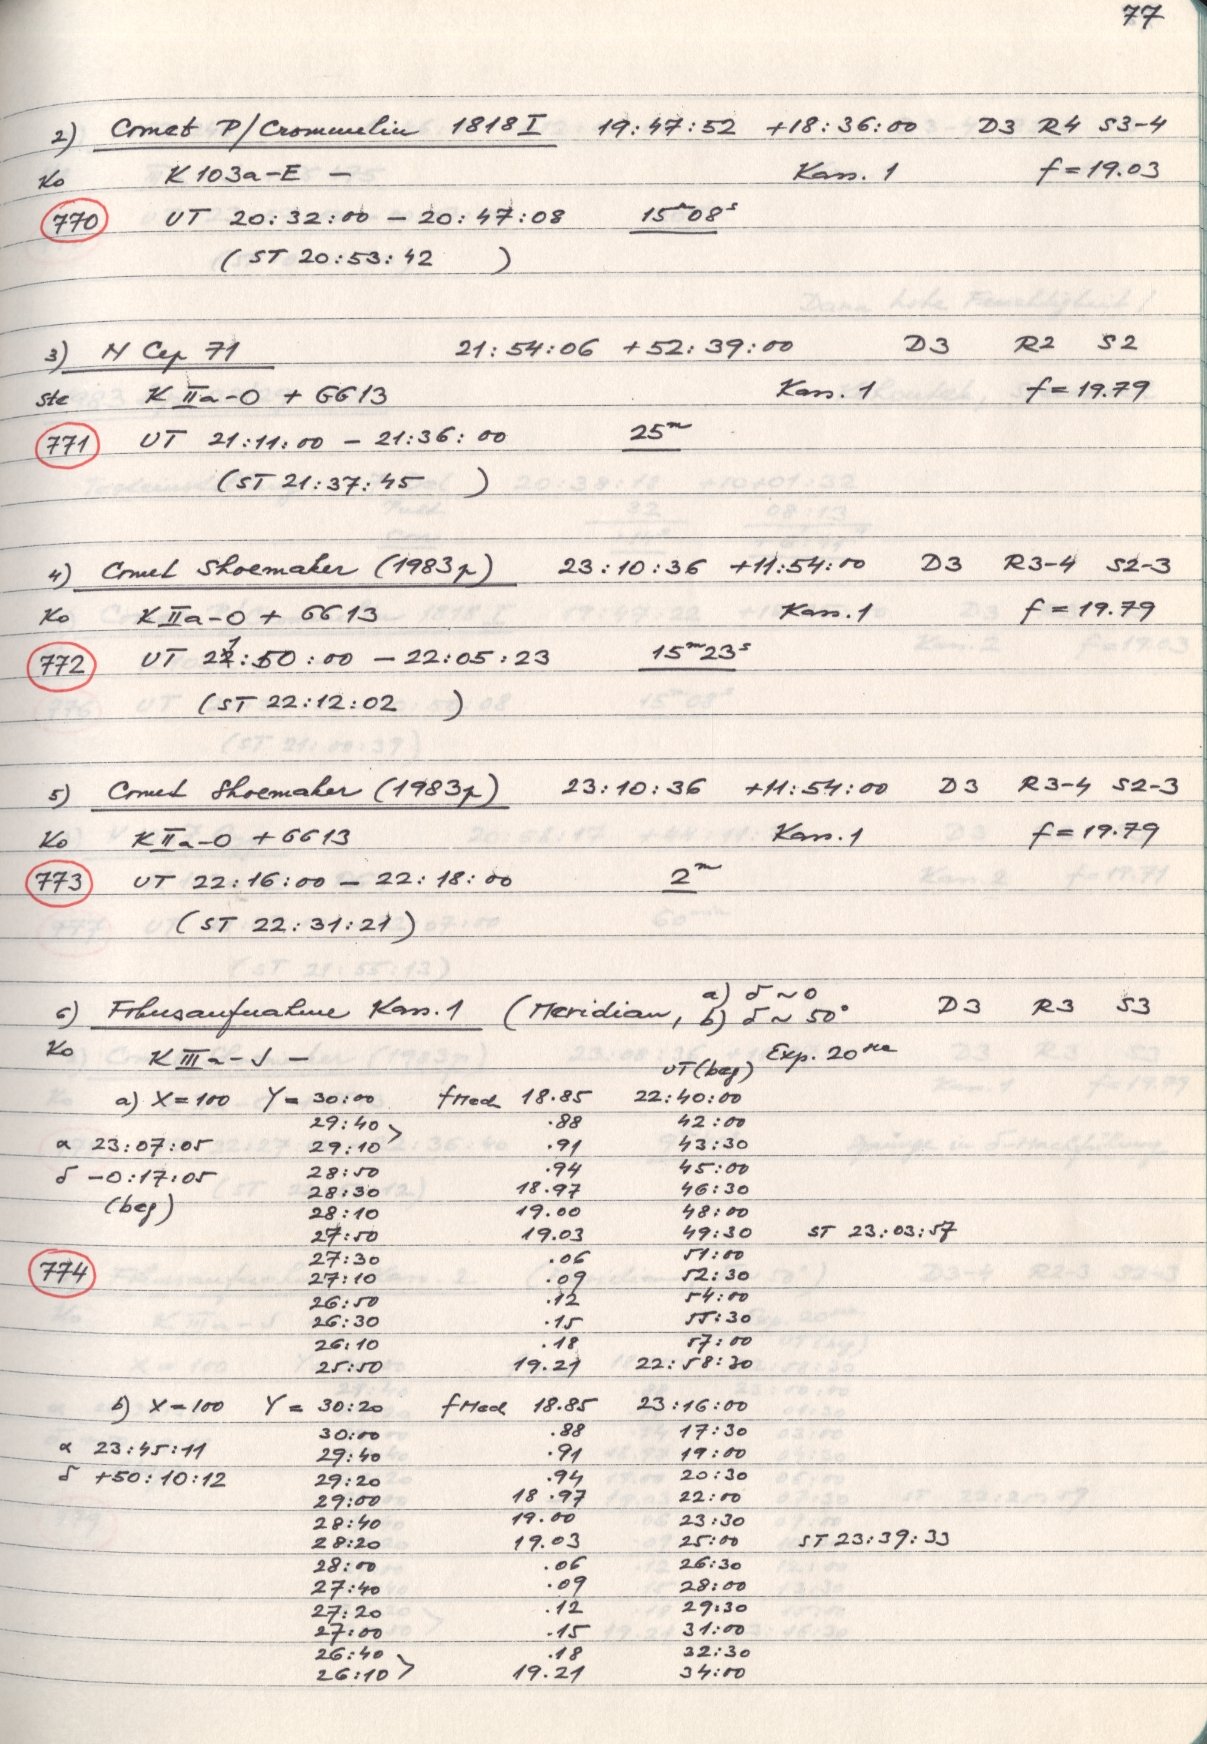 77
2) Comet P/Crommelin 1818 I 19:47:52 +18:36:00 D3 R4 S3-4
Ko K 103a-E – Kass. 1 f=19.03
770 UT 20:32:00 – 20:47:08 15m08s
(ST 20:53:42 )
3) N Cep 71 21:54:06 +52:39:00 D3 R2 S2
Ste K IIa-O + GG13 Kass. 1 f=19.79
771 UT 21:11:00 – 21:36:00 25m
(ST 21:37:45 )
4) Comet Shoemaker (1983p) 23:10:36 +11:54:00 D3 R3-4 S2-3
Ko K IIa-O + GG13 Kass. 1 f=19.79
772 UT 21:50:00 – 22:05:23 15m23s
(ST 22:12:02 )
5) Comet Shoemaker (1983p) 23:10:36 +11:54:00 D3 R3-4 S2-3
Ko K IIa-O + GG13 Kass. 1 f=19.79
773 UT 22:16:00 – 22:18:00 2m
(ST 22:31:21)
6) Fokusaufnahme Kass. 1 (Meridian, a) δ ~ 0 D3 R3 S3
b) δ ~ 50°
Ko K IIIa-J – UT (beg) Exp. 20sec
a) X=100 Y= 30:00 fMed 18.85 22:40:00
29:40 .88 42:00
α 23:07:05 29:10 .91 43:30
δ –0:17:05 28:50 .94 45:00
28:30 18.97 46:30
(beg) 28:10 19.00 48:00
27:50 19.03 49:30 ST 23:03:57
774 27:30 .06 51:00
27:10 .09 52:30
26:50 .12 54:00
26:30 .15 55:30
26:10 .18 57:00
25:50 19.21 22:58:30
b) X=100 Y= 30:20 fMed 18.85 23:16:00
30:00 .88 17:30
α 23:45:11 29:40 .91 19:00
δ +50:10:12 29:20 .94 20:30
29:00 18.97 22:00
28:40 19.00 23:30
28:20 19.03 25:00 ST 23:39:33
28:00 .06 26:30
27:40 .09 28:00
27:20 .12 29:30
27:00 .15 31:00
26:40 .18 32:30
26:10 19.21 34:00